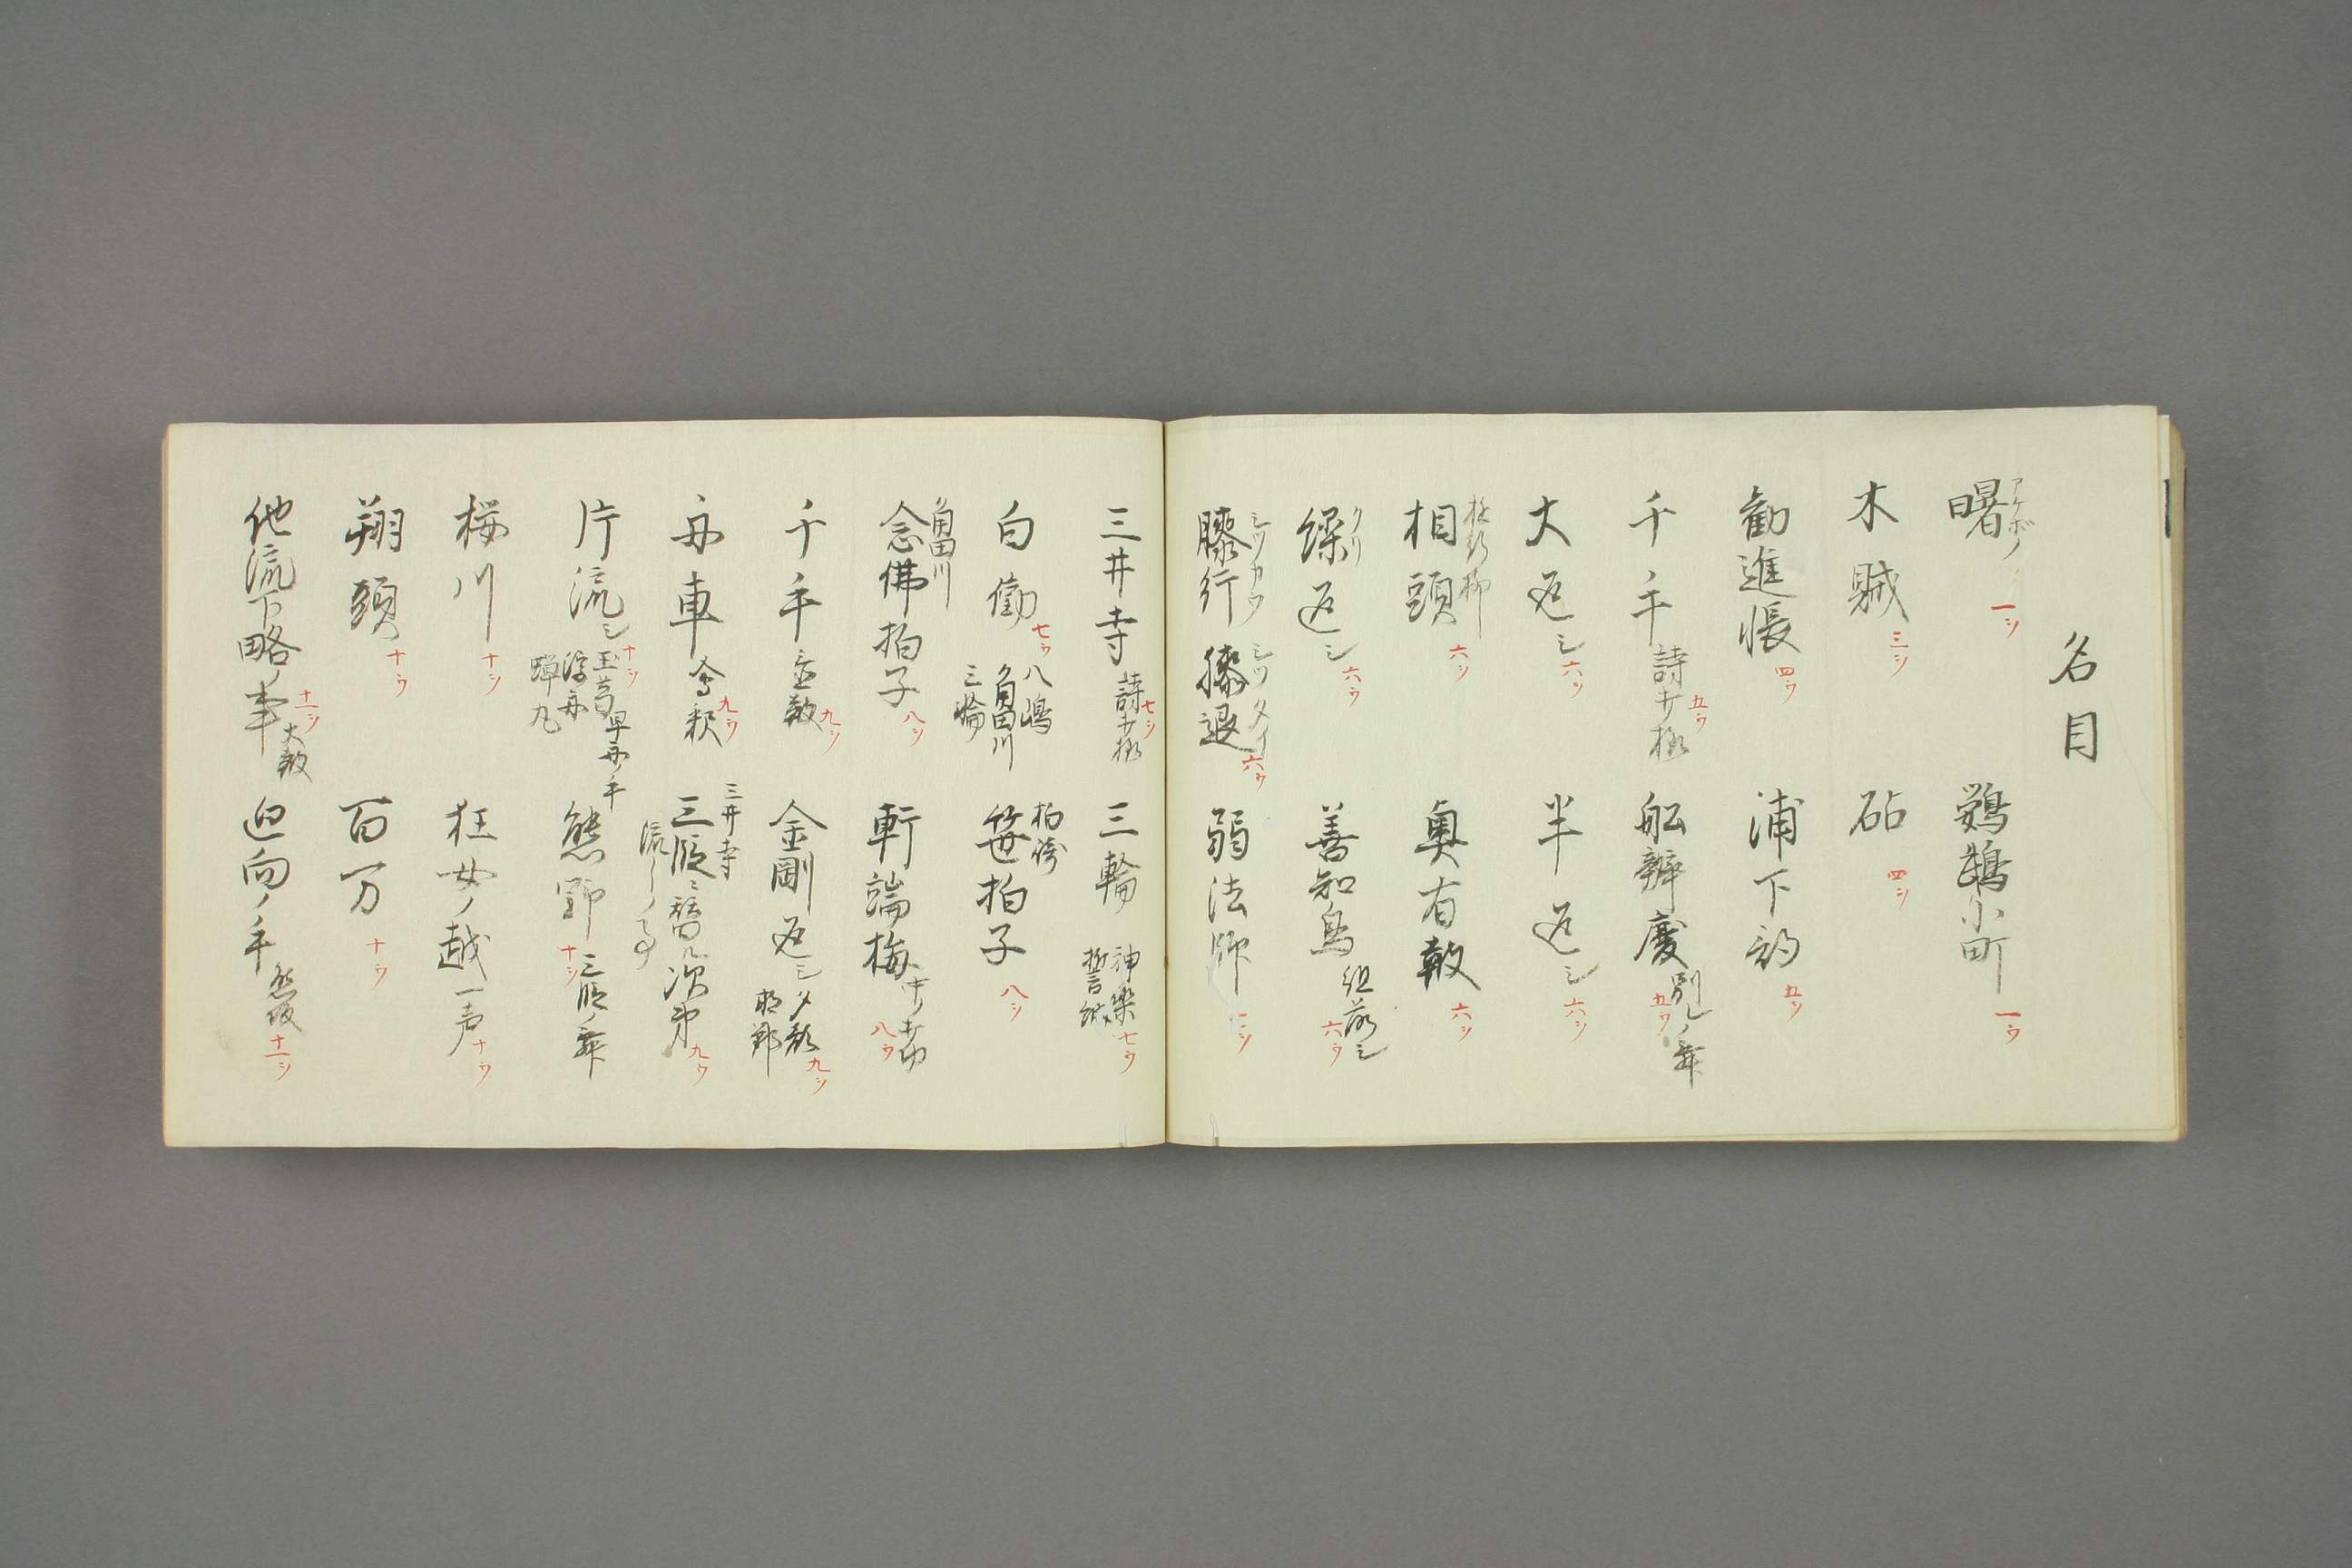 名目
曙 アケボノ 一シ
鸚鵡小町 一ウ
木賊 三シ
砧 四シ
勧進帳 四ウ
浦下 五シ
千手 五ウ
船辨慶 別レノ舞 五ウ
大返シ 六シ
半返シ 六シ
相頭 六シ
奥有鼓 六シ
繰返シ クリ 六ウ
善知鳥 組落シ 六ウ
膝行 シツカウ 膝退 シツタイ 六ウ
弱法師
三井寺 七シ
三輪 神楽 誓納 七ウ
白働 七ウ 八嶋 角田川 三輪
笹拍子 柏崎 八シ
角田川 念佛拍子 八シ
軒端梅 八ウ
千手 九シ
金剛返シ 邯鄲 九シ
舟車 九ウ
三井寺 三段 次第 九ウ
片流シ 十シ 玉葛 浮舟 蝉丸 早舟ノ手
熊野 十シ 三段ノ舞
桜川 十シ
狂女ノ越 一声 十ウ
翔頭 十ウ
百万 十ウ
他流下略ノ事 十一シ 大鼓
迎向ノ手 熊坂 十一シ